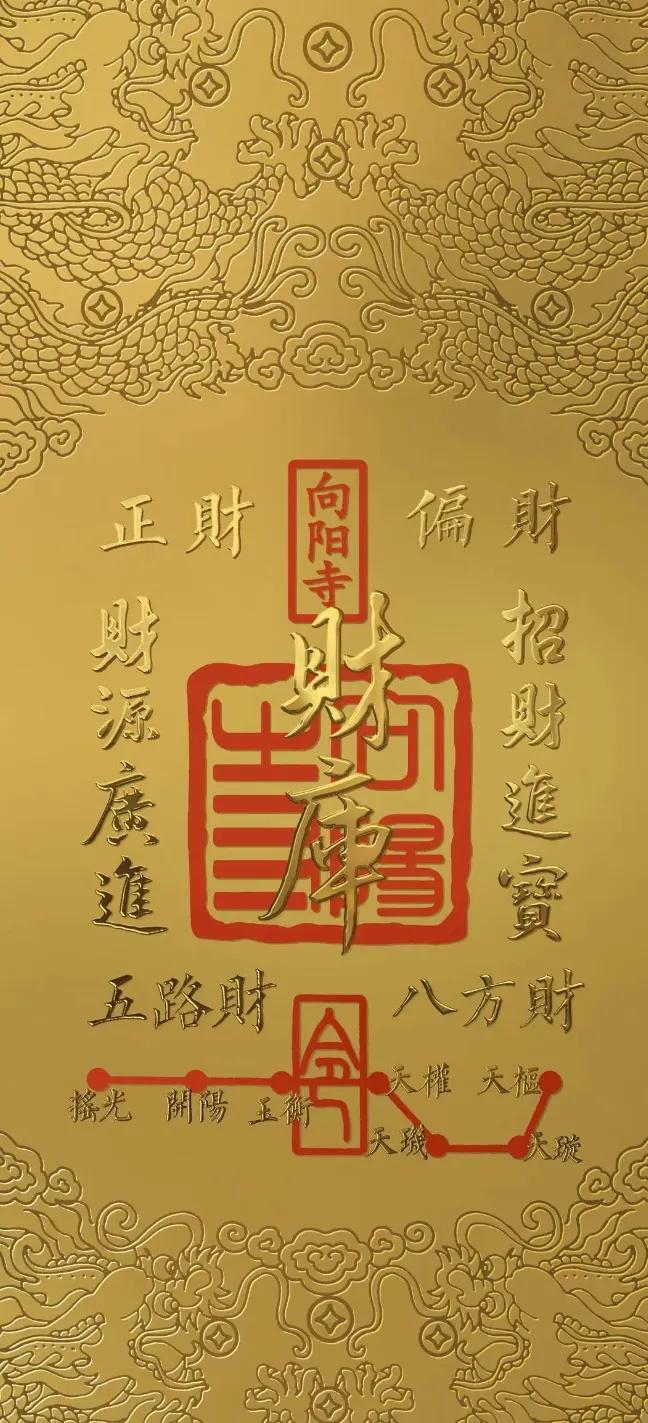 向阳寺
正財 偏財
財庫
財源廣進
招財進寶
五路財 八方財
令
搖光 開陽 玉衡 天權 天樞
天璣 天璇